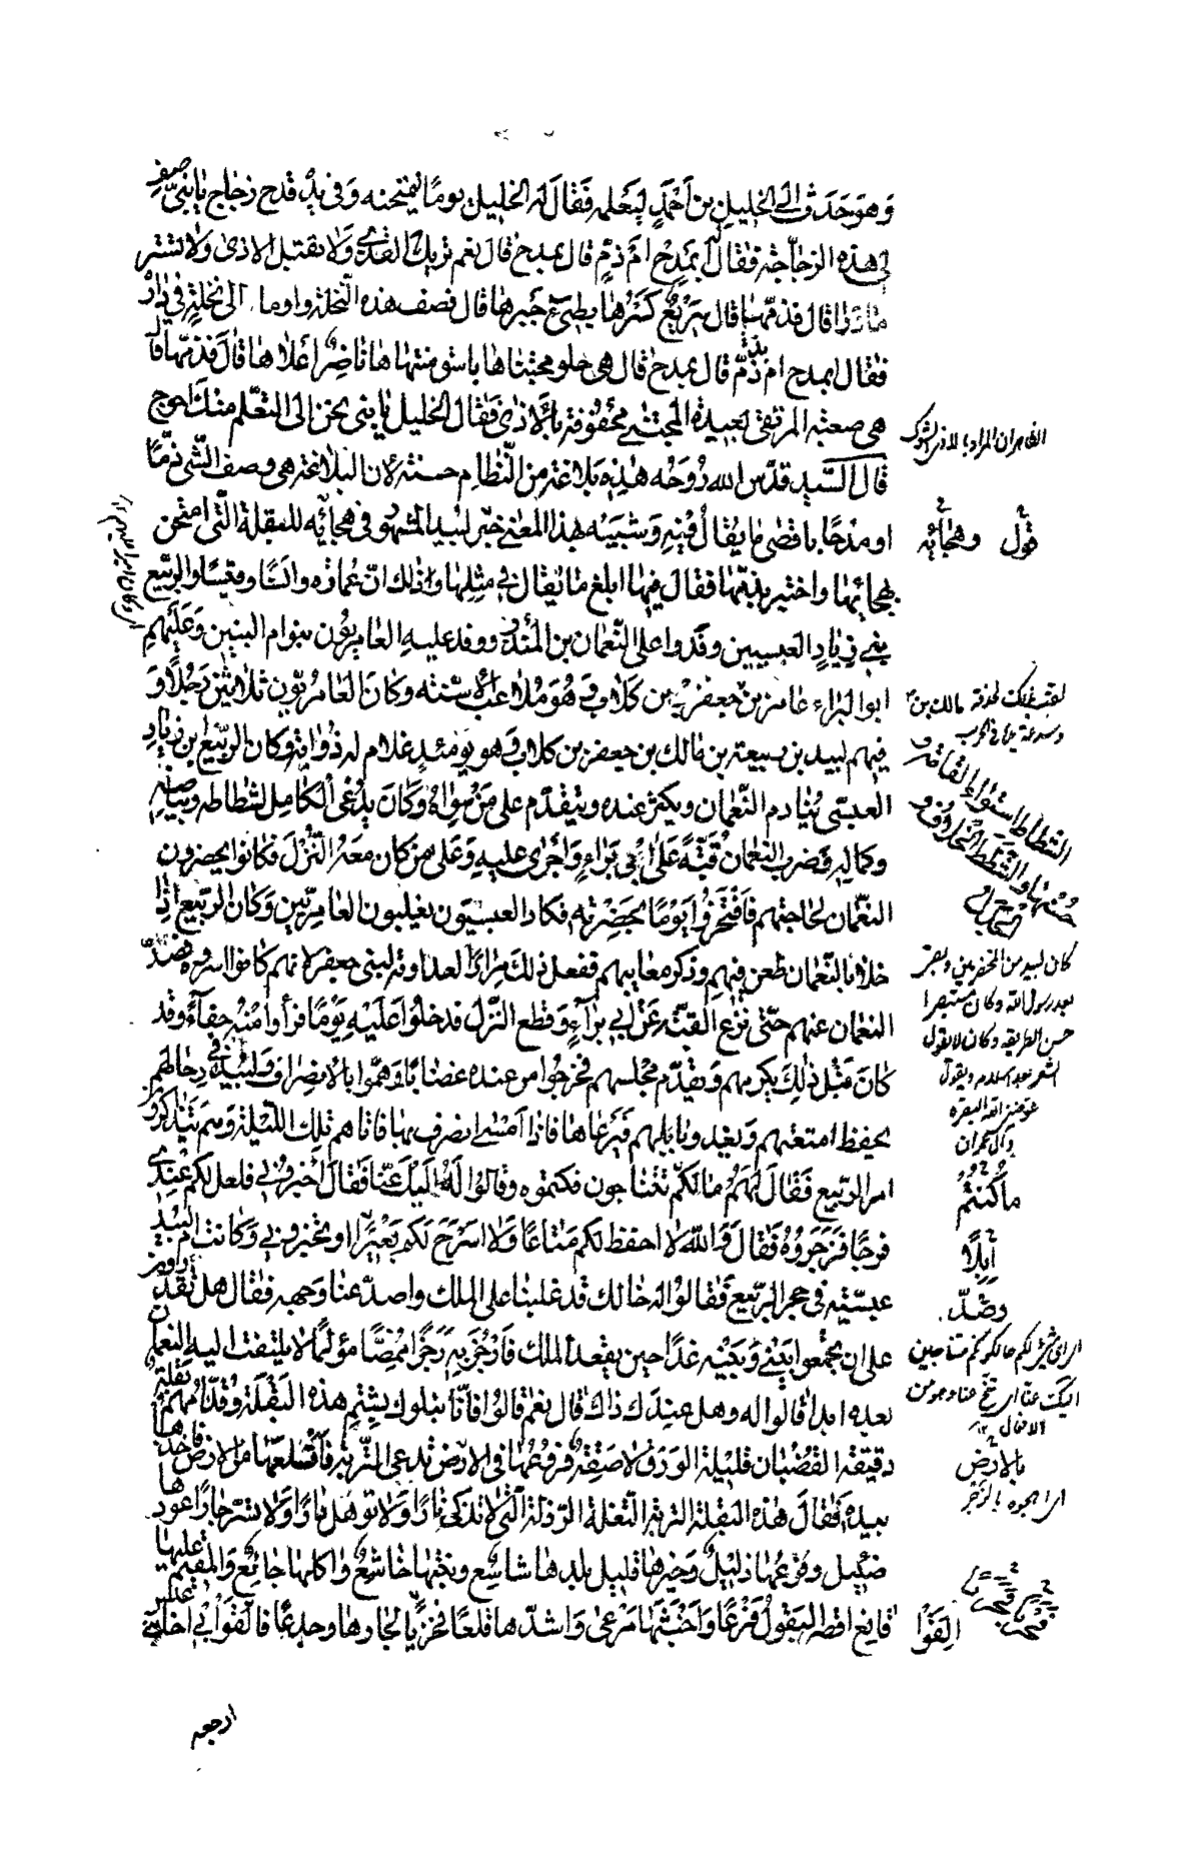 وهو حدث الى الخليل بن احمد ليعلمه فقال له الخليل يوما يمتحنه وفى يده قدح زجاج يا بنى صف
لى هذه الزجاجة فقال أبمدح ام ذم قال بمدح قال نعم تريك القذى ولا تقبل الاذى ولا تستر
ما ورا قال فذمها قال سريع كسرها بطىء جبرها قال فصف هذه النخلة واوما الى نخلة فى داره
فقال ابمدح ام بذم قال بمدح قال هى حلو مجتناها باسق منتهاها ناضر اعلاها قال فذمها قال
هى صعبة المرتقى بعيدة المجتنى محفوفة بالاذى فقال الخليل يا بنى نحن الى التعلم منك احوج
قال السيد قدس الله روحه هذه بلاغة من النظام حسنة لان البلاغة هى وصف الشىء ذما
او مدحا باقصى ما يقال فيه وشبيه بهذا المعنى خبر لبيد المشهور فى هجائه للبقلة التى امتحن
بهجائها واختبر بذمها فقال فيها ابلغ ما يقال فى مثلها وذلك ان عمارة وانسا وقيسا والربيع
بنى زياد العبسيين وفدوا على النعمان بن المنذر ووفد عليه العامريون بنو ام البنين وعليهم
ابو البراء عامر بن جعفر بن كلاب وهو ملاعب الاسنة وكان العامريون ثلاثين رجلا و
فيهم لبيد بن ربيعة بن مالك بن جعفر بن كلاب وهو يومئذ غلام له ذوابة وكان الربيع ابن زياد
العبسى ينادم النعمان ويكثر عنده ويتقدم على من سواه وكان يدعى الكامل لشطاطه وبياضه
وكماله فضرب النعمان قبة على ابى براء واجرى عليه وعلى من كان معه النزل فكانوا يحضرون
النعمان لحاجتهم فافتخروا يوما بحضرته فكاد العبسيون يغلبون العامريين وكان الربيع اذا
خلا بالنعمان طعن فيهم وذكر معايبهم ففعل ذلك مرارا لعداوته لبنى جعفر لانهم كانوا اسروه فصد
النعمان عنهم حتى نزع القبة عن ابى براء وقطع النزل فدخلوا عليه يوما فراوا منه جفاء وقد
كان قبل ذلك يكرمهم ويقدم مجلسهم فخرجوا من عنده غضابا وهموا بالانصراف ولبيد فى رحالهم
يحفظ امتعتهم ويغدو بابلهم فيرعاها فاذا امسى انصرف بها فاتاهم تلك الليلة وهم يتذاكرون
امر الربيع فقال لهم مالكم تتناجون فكتموه وقالوا له اليك عنا فقال اخبرونى فلعل لكم عندى
فرجا فزجروه فقال والله لا احفظ لكم متاعا ولا اسرح لكم بعيرا او تخبرونى وكانت ام لبيد
عبسية فى حجر الربيع فقالوا له خالك قد غلبنا على الملك واصد عنا وجهه فقال هل تقدرون
على ان تجمعوا بينى وبينه غدا حين يقعد الملك فارجز به رجزا ممضا مؤلما لا يلتفت اليه النعمان
بعده ابدا قالوا له وهل عندك ذاك قال نعم قالوا فانا نبلوك بشتم هذه البقلة وقدامهم بقلة
دقيقة القضبان قليلة الورق لاصقة فروعها فى الارض تدعى التربة فاقتلعها من الارض فاخذها
بيده فقال هذه البقلة التربة التفلة الرذلة التى لا تذكى نارا ولا توهل دارا ولا تسر جارا عودها
ضئيل وفرعها ذليل وخيرها قليل بلدها شاسع ونبتها خاشع واكلها جائع والمقيم عليها
قانع اقصر البقول فرعا واخبثها مرعى واشدها قلعا فحربا لجارها وجدعا فالقوا بى اخا عبس
ارجعه
الظاهر ان المراد بالاذى الشوك
قول وهجائه
الشطاط استواء القامة
كان لبيد من المخضرمين
بعد رسول الله وكان مستبصرا
حسن الطريقه وكان لا يقول
الشعر بعد اسلامه ويقول
عوضنى الله البقره
وآل عمران
ما كنتم
ابلا
وصد
بالارض
القوا